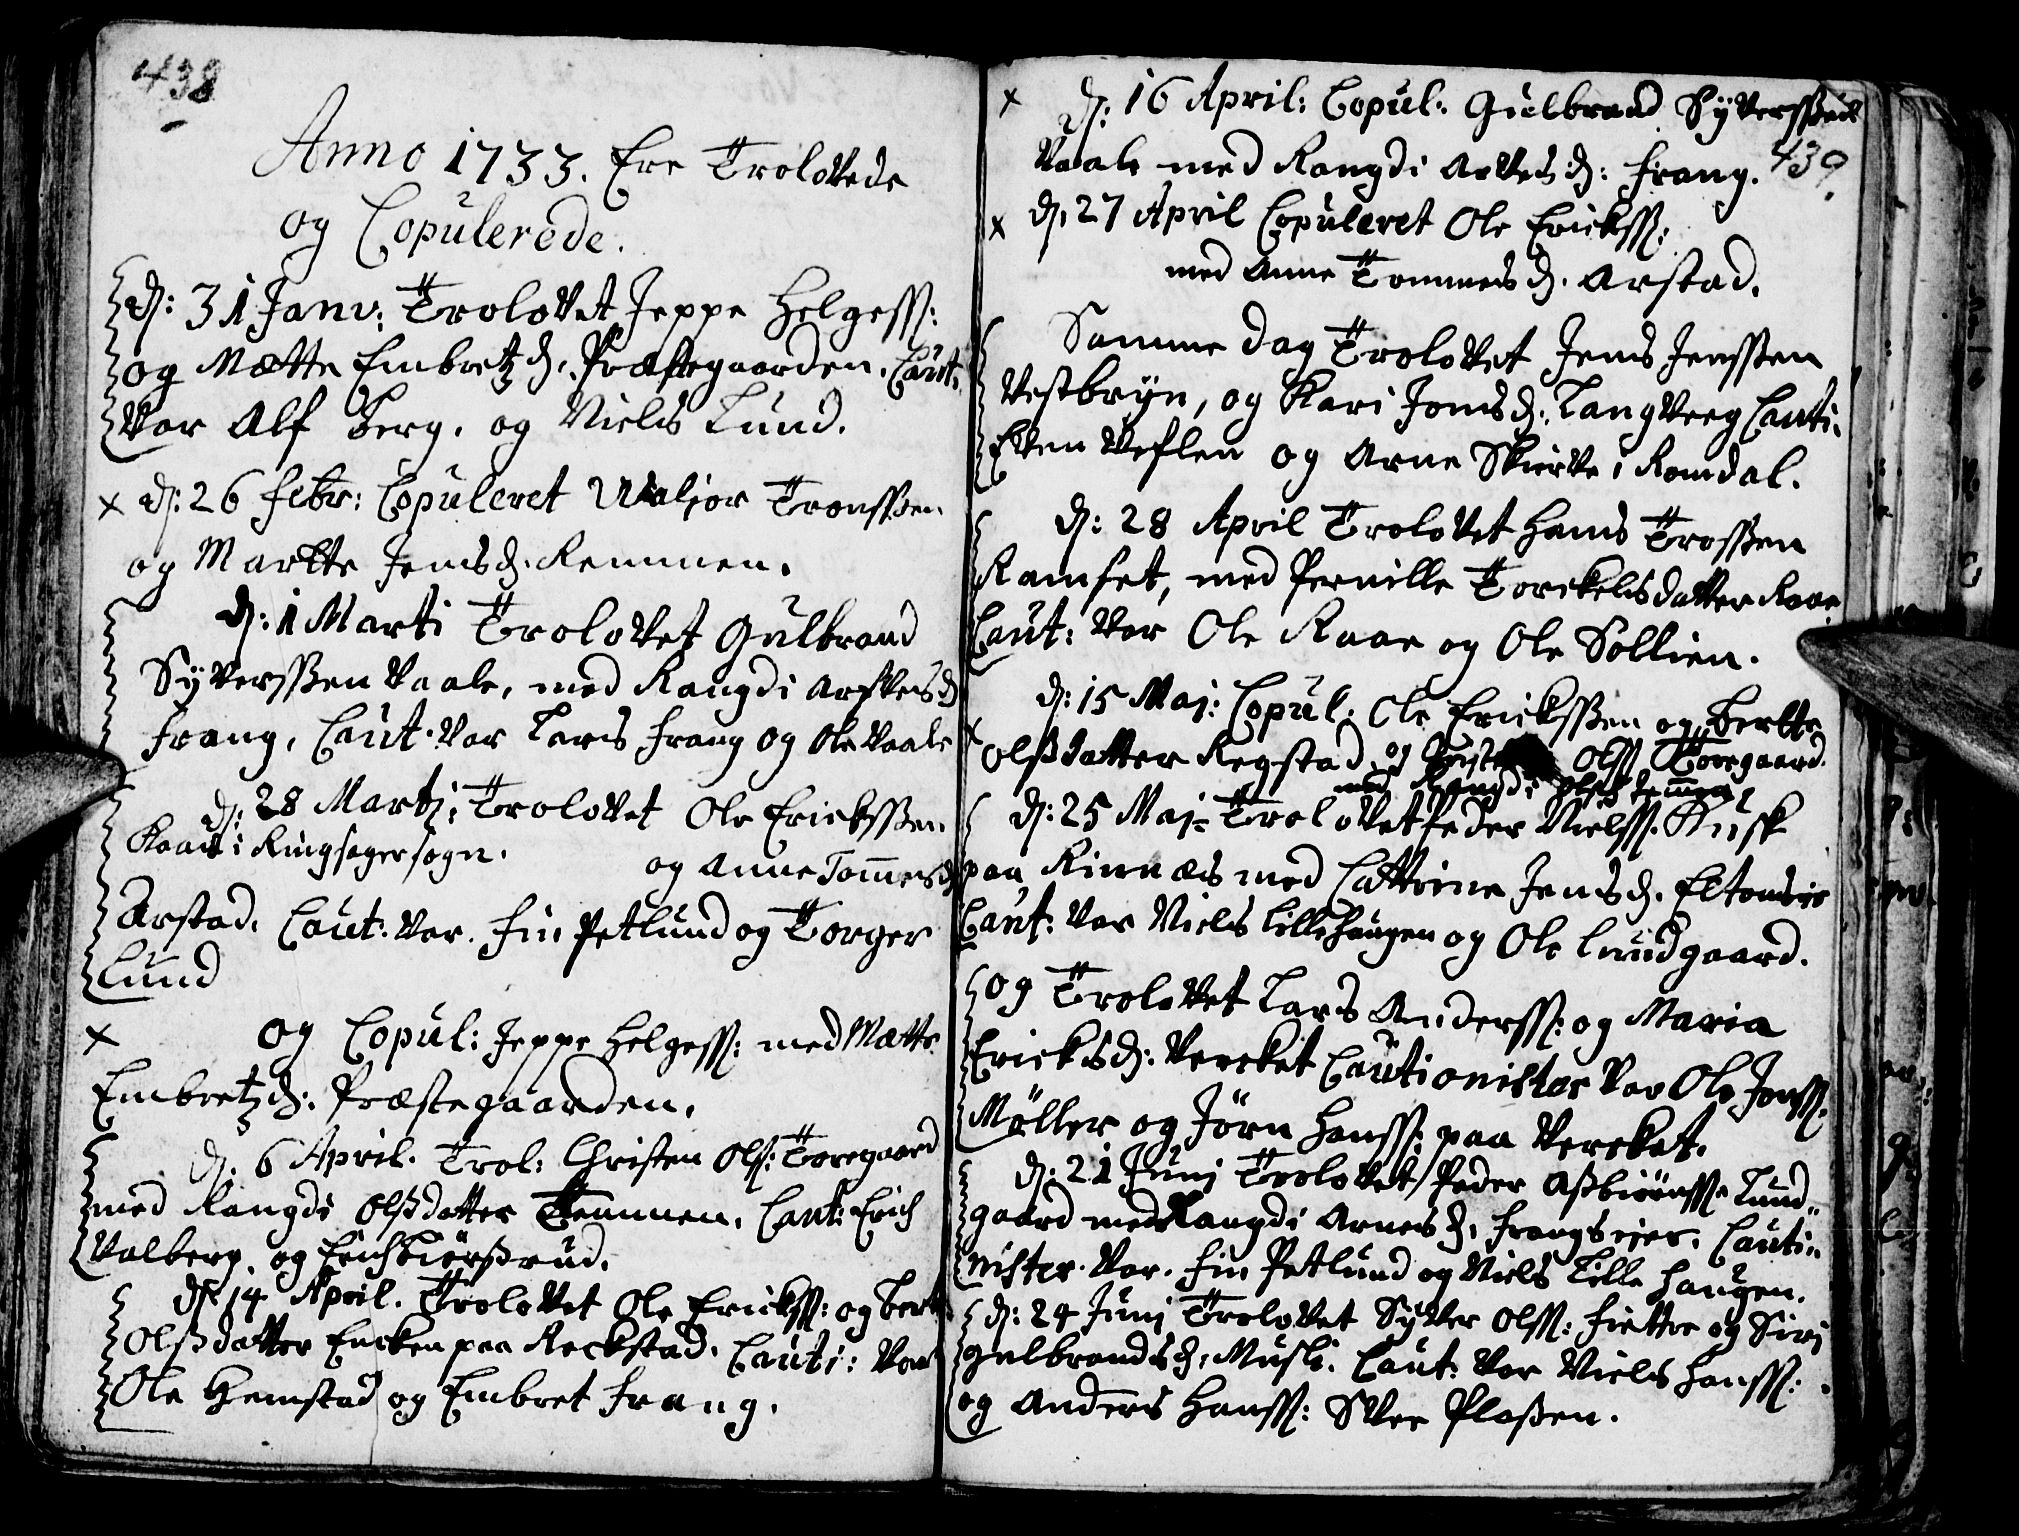 438
Anno 1733. Ere Trolovede
og Copulerede.
d: 31 Janv: Trolovet Jeppe Helgess:
og Mætte Embretzd. Præstegaarden. Caut:
var Alf Berg. og Niels Lund.
x d: 26 febr: Copuleret Tronssen
og Marthe Jensd. Remmen.
d: 1 Marti Trolovet Gulbrand
Syverssen Vaale, med Rangdi Arvesd
frang, Caut. var Lars frang og Ole Vaale
d: 28 Martj: Trolovet Ole Erickssen
Kaart i Ringsager sogn. og Anne Tommesd
Arstad. Caut: var. Fin Petlund og Torger
Lund
x og Copul: Jeppe Helgess: med Mætte
Embretzd: Præstegaarden.
d: 6 April. Trol: Christen Ols: Toregaard
med Rangdi Olsdatter Temmen. Caut: Erich
Valberg. og Erich Biørssrud.
d: 14 April. Trolovet Ole Ericks: og Bert
Olsdatter Encken paa Reckstad. Cauti: var
Ole Hemstad og Embret frang.
x d: 16 April: Copul. Gulbrand Syverssen
439.
Vaale med Rangdi Arvesd: frang.
x d. 27 April Copuleret Ole Ericks:
med Anne Tommesd. Arstad.
Samme dag Trolovet Jens Jenssen
Vestbryn, og Kari Jonsd. Langverg Cauti.
Even Veflen og Arne Skierve i Romdal.
d: 28 April Trolovet Hans Trossen
Ramset, med Pernille Torckelsdatter Raae
Caut: var Ole Raae og Ole Sollien.
x d: 15 Maj: Copul: Ole Erickssen og Berthe
Olsdatter Regstad og Olss Toregaard
med Rangdi Olsd Temmen
d: 25 Maj: Trolovet Peder Nielss. Kusk
paa Rinnæs med Cathrine Jensd. Eltonseie
Caut: var Niels Lillehaugen og Ole Lundgaard.
og Trolovet Lars Anderss: og Maria
Ericksd: Vercket Cautionister var Ole Jonss.
Møller og Jørn Hanss: paa Vercket.
d: 21 Junj Trolovet Peder Asbiørnss. Lund-
gaard med Rangdi Arnesd. frangs eier. Cauti-
nister. var. Fin Petlund og Niels Lille Haugen.
d: 24 Junj Trolovet Syver Olss: Fiettre og Siri
Gulbrandsd: Musli. Caut: var Niels Hanss:
og Anders Hanss: Svee Plassen.